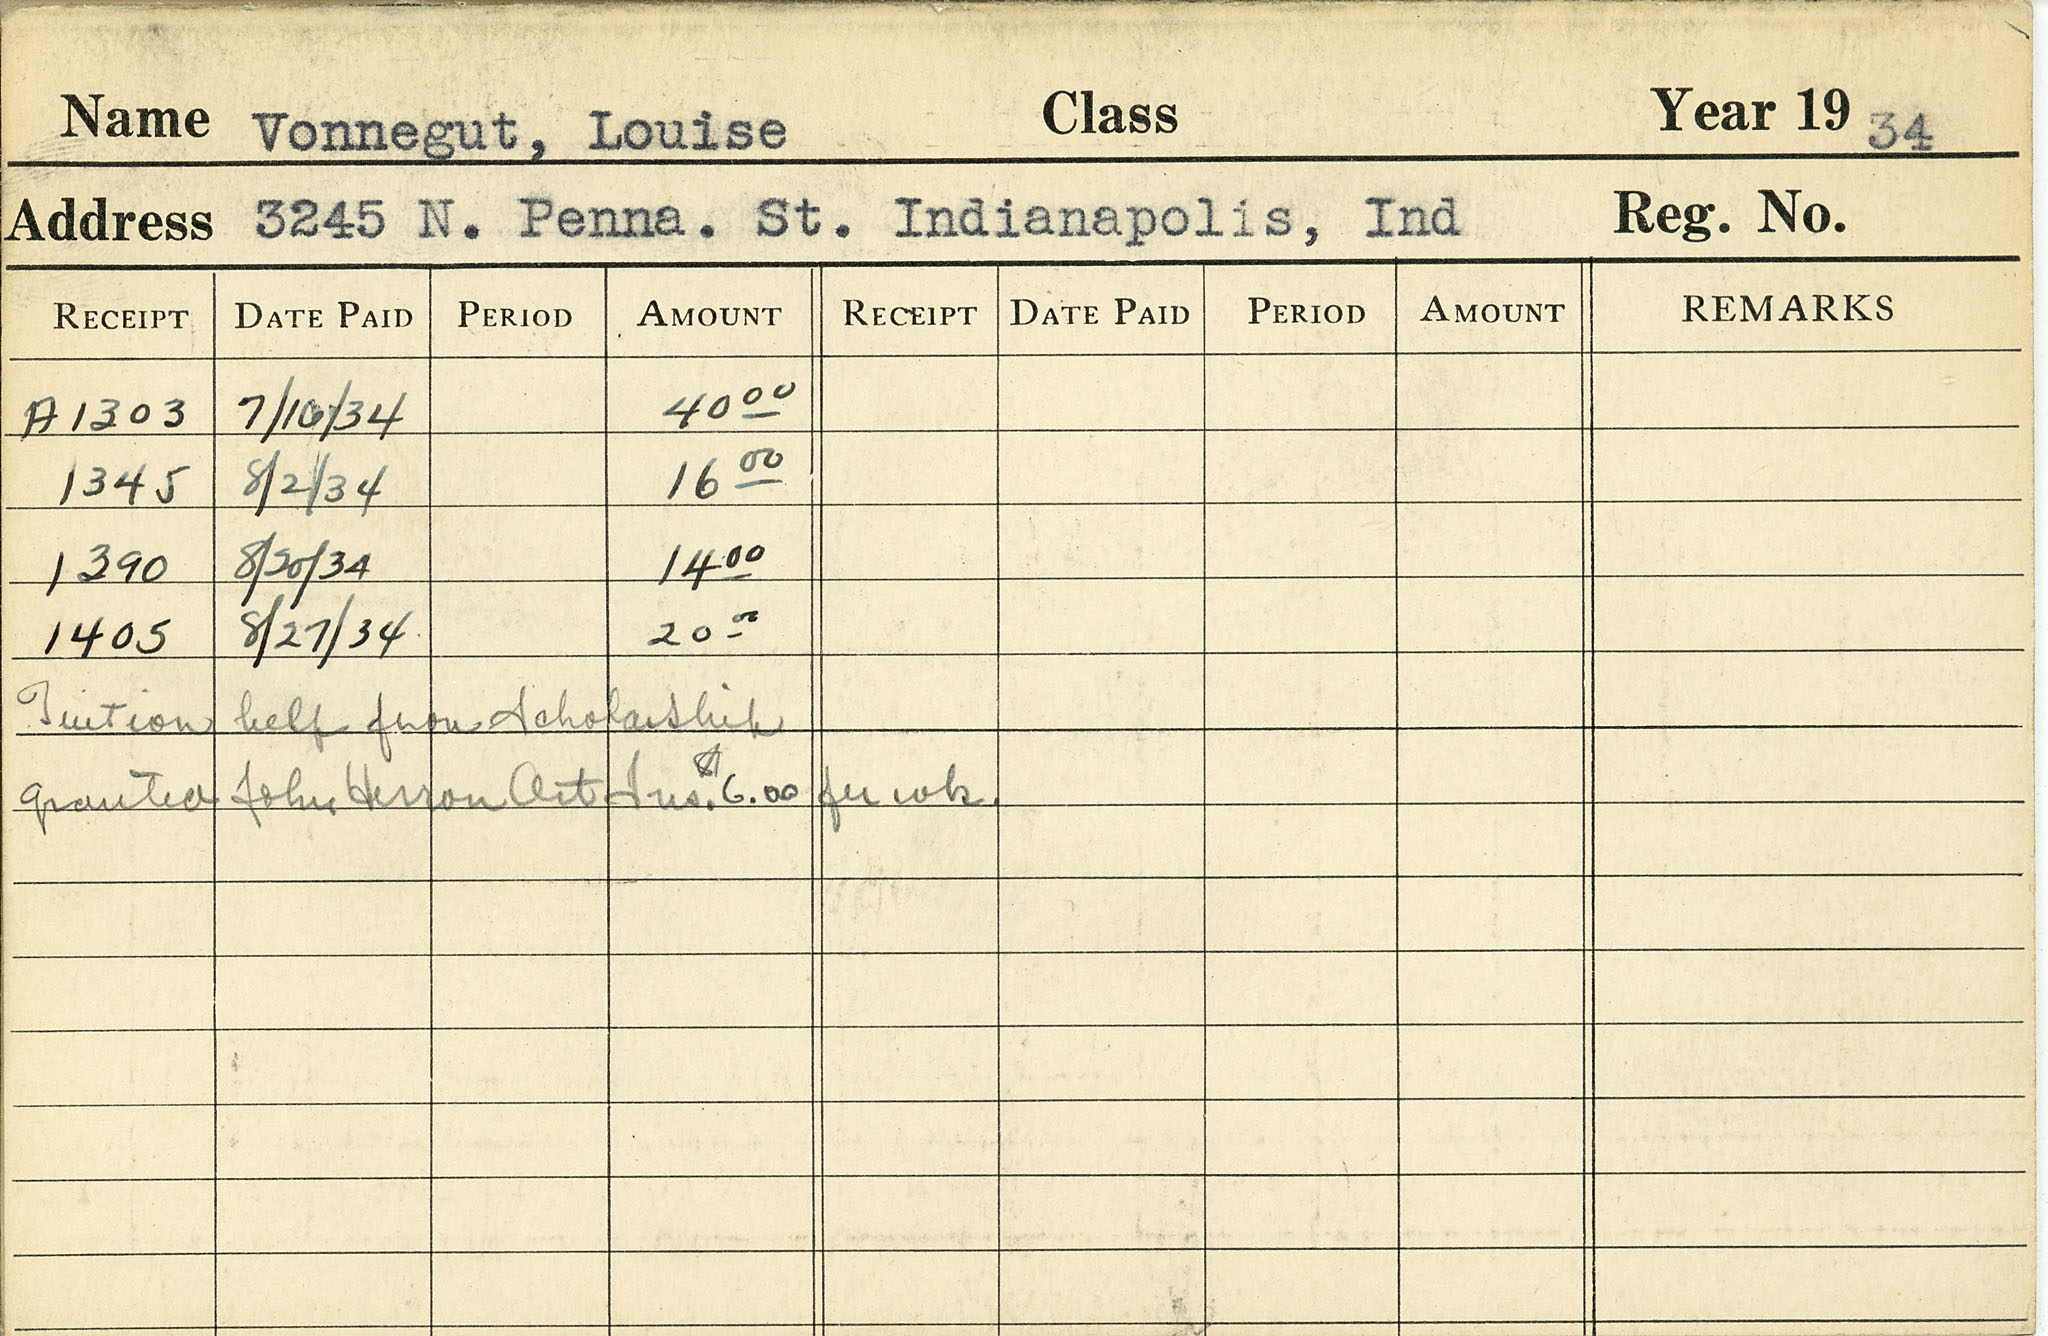 Name Vonnegut, Louise Class Year 19 34
Address 3245 N. Penna. St. Indianapolis, Ind Reg. No.
RECEIPT DATE PAID PERIOD AMOUNT RECEIPT DATE PAID PERIOD AMOUNT REMARKS
A1303 7/16/34 40 00
1345 8/2/34 16 00
1390 8/20/34 14 00
1405 8/27/34 20 00
Tuition help from Scholarship
granted John Herron Art Ins. $6.00 per wk.